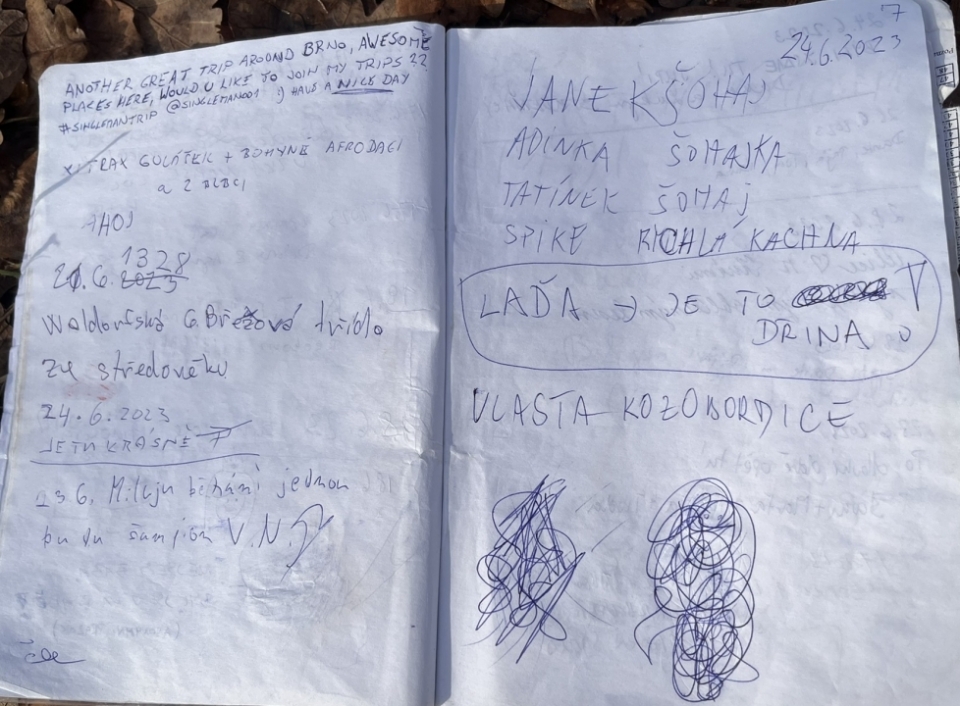 ANOTHER GREAT TRIP AROUND BRNO, AWESOME
PLACES HERE, WOULD U LIKE TO JOIN MY TRIPS ??
#SINGLEMANTRIP @SINGLEMAN001 :) HAVE A NICE DAY
GULÁTEK + BOHYNĚ AFRODAGI
a 2 BLBCI
AHOJ
1328
21.6. 2023
Waldorfská G. Březová třída
ze středověku
24.6.2023
JE TU KRÁSNĚ
23.6. Miluju běhání jednou
budu šampion V.N.
7
24.6.2023
JANEK ŠOHAJ
ADINKA ŠOHAJKA
TATÍNEK ŠOHAJ
SPIKE RICHLÁ KACHNA
LAĎA → JE TO
DŘINA
VLASTA KOZOBORDICE